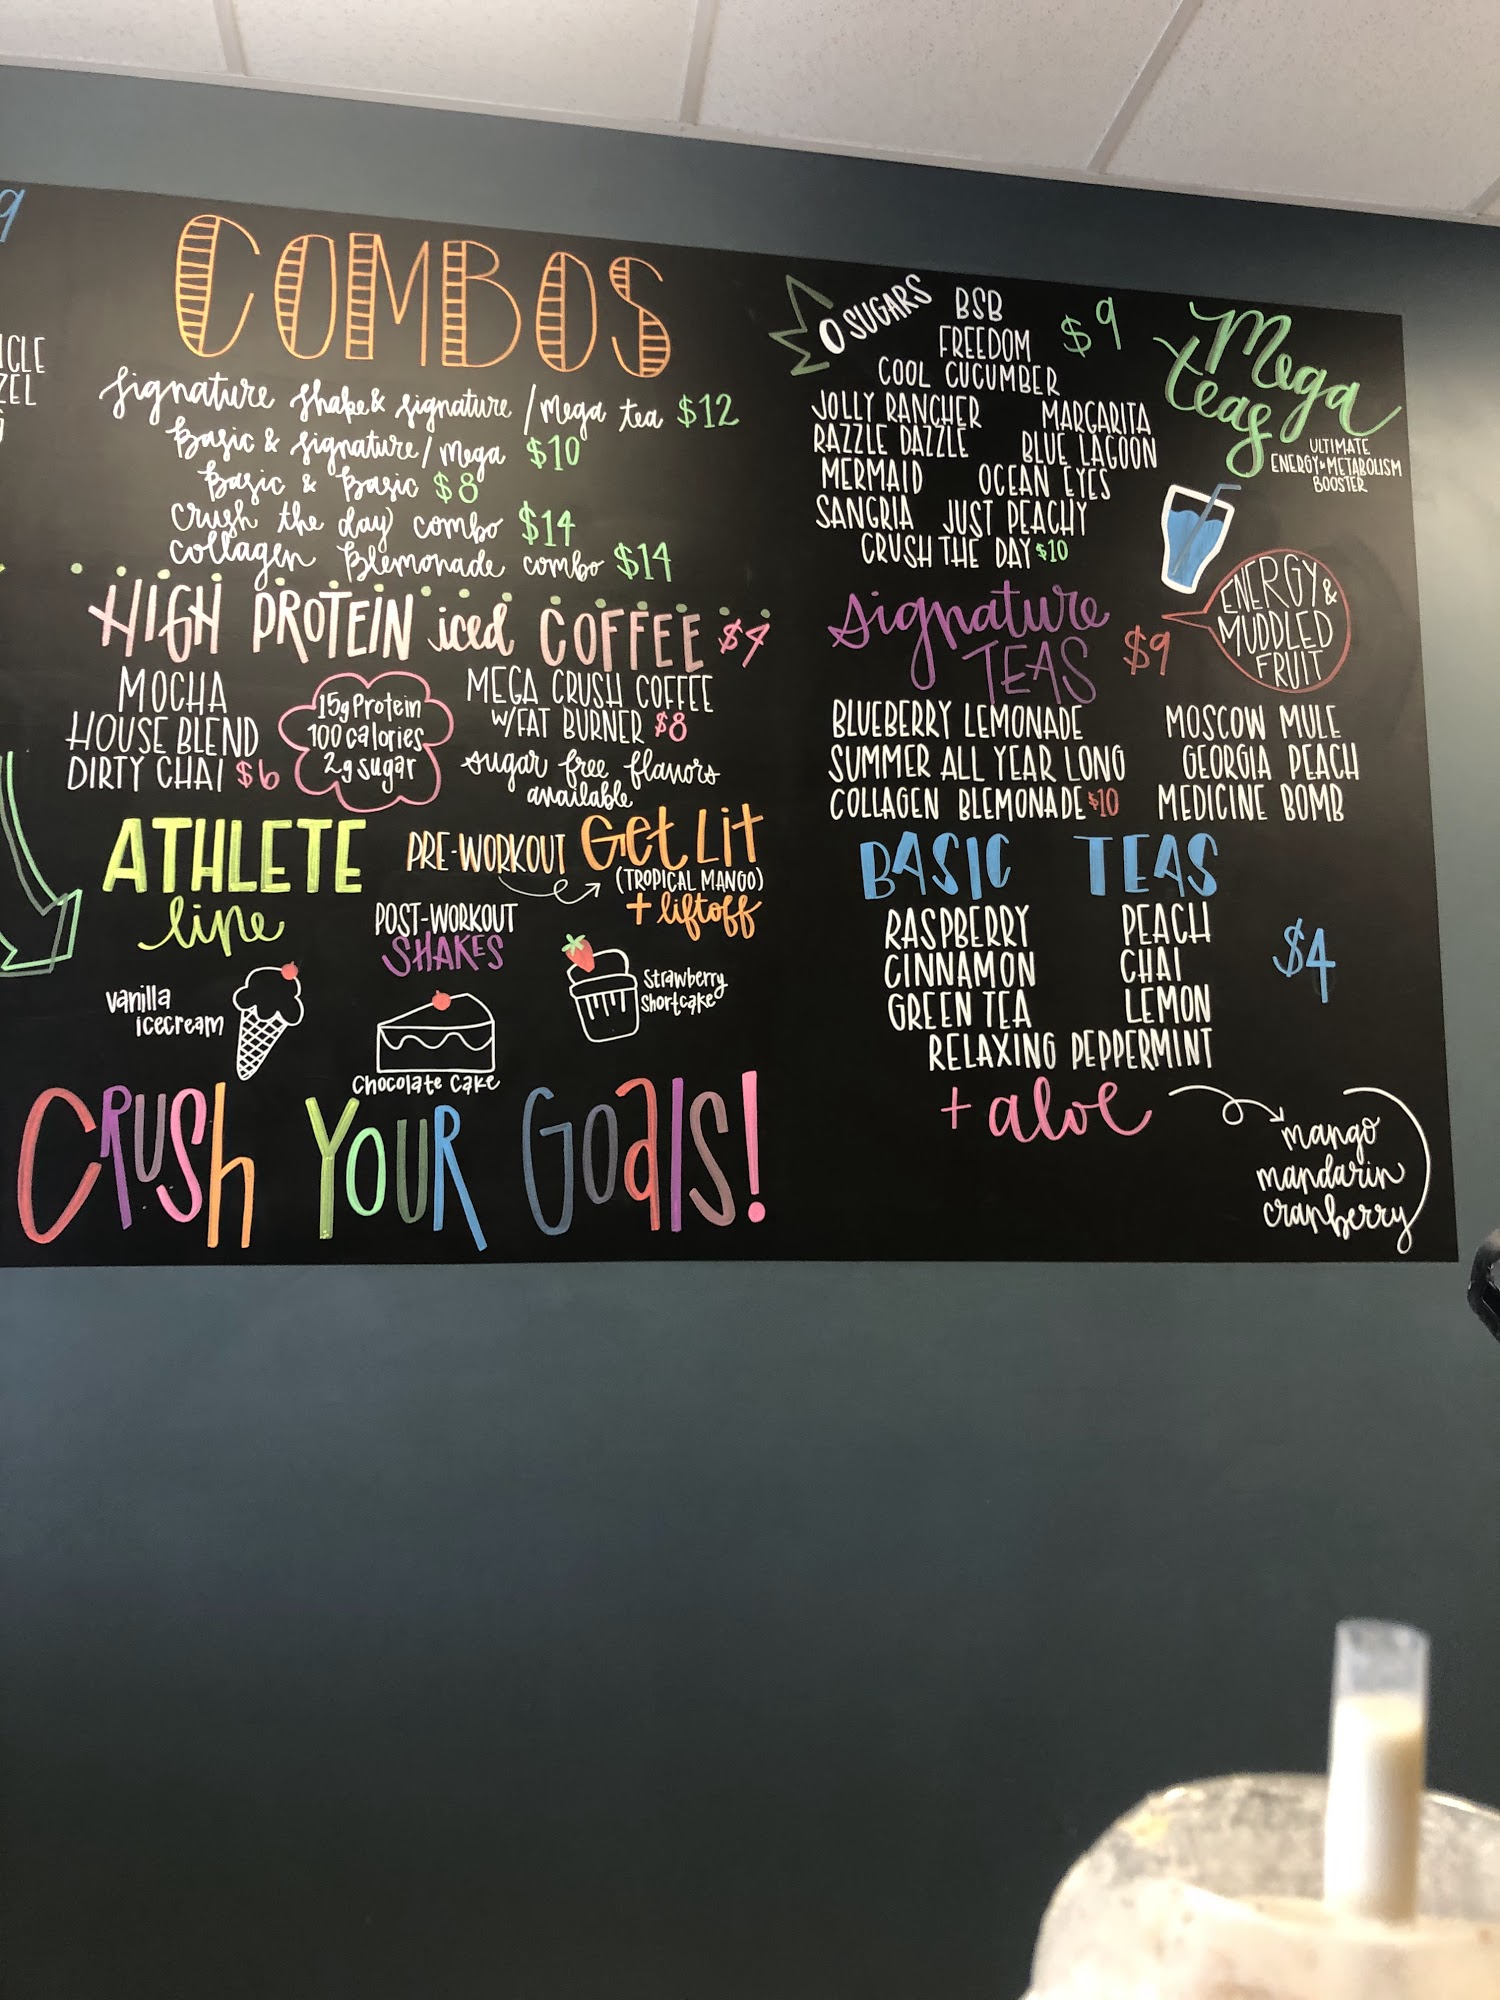 9
ICLE
ZEL
COMBOS
Signature Shake & Signature / Mega tea $12
Basic & Signature / Mega $10
Basic & Basic $8
Crush the day combo $14
Collagen Blemonade combo $14
HIGH PROTEIN iced COFFEE
MOCHA
HOUSE BLEND
DIRTY CHAI $6
15g Protein
100 calories
2g sugar
MEGA CRUSH COFFEE
W/FAT BURNER $8
sugar free flavors
available
ATHLETE
line
PRE-WORKOUT GET LIT
(TROPICAL MANGO)
+ liftoff
POST-WORKOUT
SHAKES
vanilla
icecream
Chocolate Cake
Strawberry
Shortcake
CRUSh YOUR GOalS!
0 SUGARS
BSB
FREEDOM
COOL CUCUMBER
$9
JOLLY RANCHER MARGARITA
RAZZLE DAZZLE BLUE LAGOON
MERMAID OCEAN EYES
SANGRIA JUST PEACHY
CRUSH THE DAY $10
Mega
teas
ULTIMATE
ENERGY+METABOLISM
BOOSTER
Signature
TEAS $9
ENERGY &
MUDDLED
FRUIT
BLUEBERRY LEMONADE MOSCOW MULE
SUMMER ALL YEAR LONG GEORGIA PEACH
COLLAGEN BLEMONADE $10 MEDICINE BOMB
BASIC TEAS
RASPBERRY PEACH
CINNAMON CHAI $4
GREEN TEA LEMON
RELAXING PEPPERMINT
+ aloe
mango
mandarin
cranberry